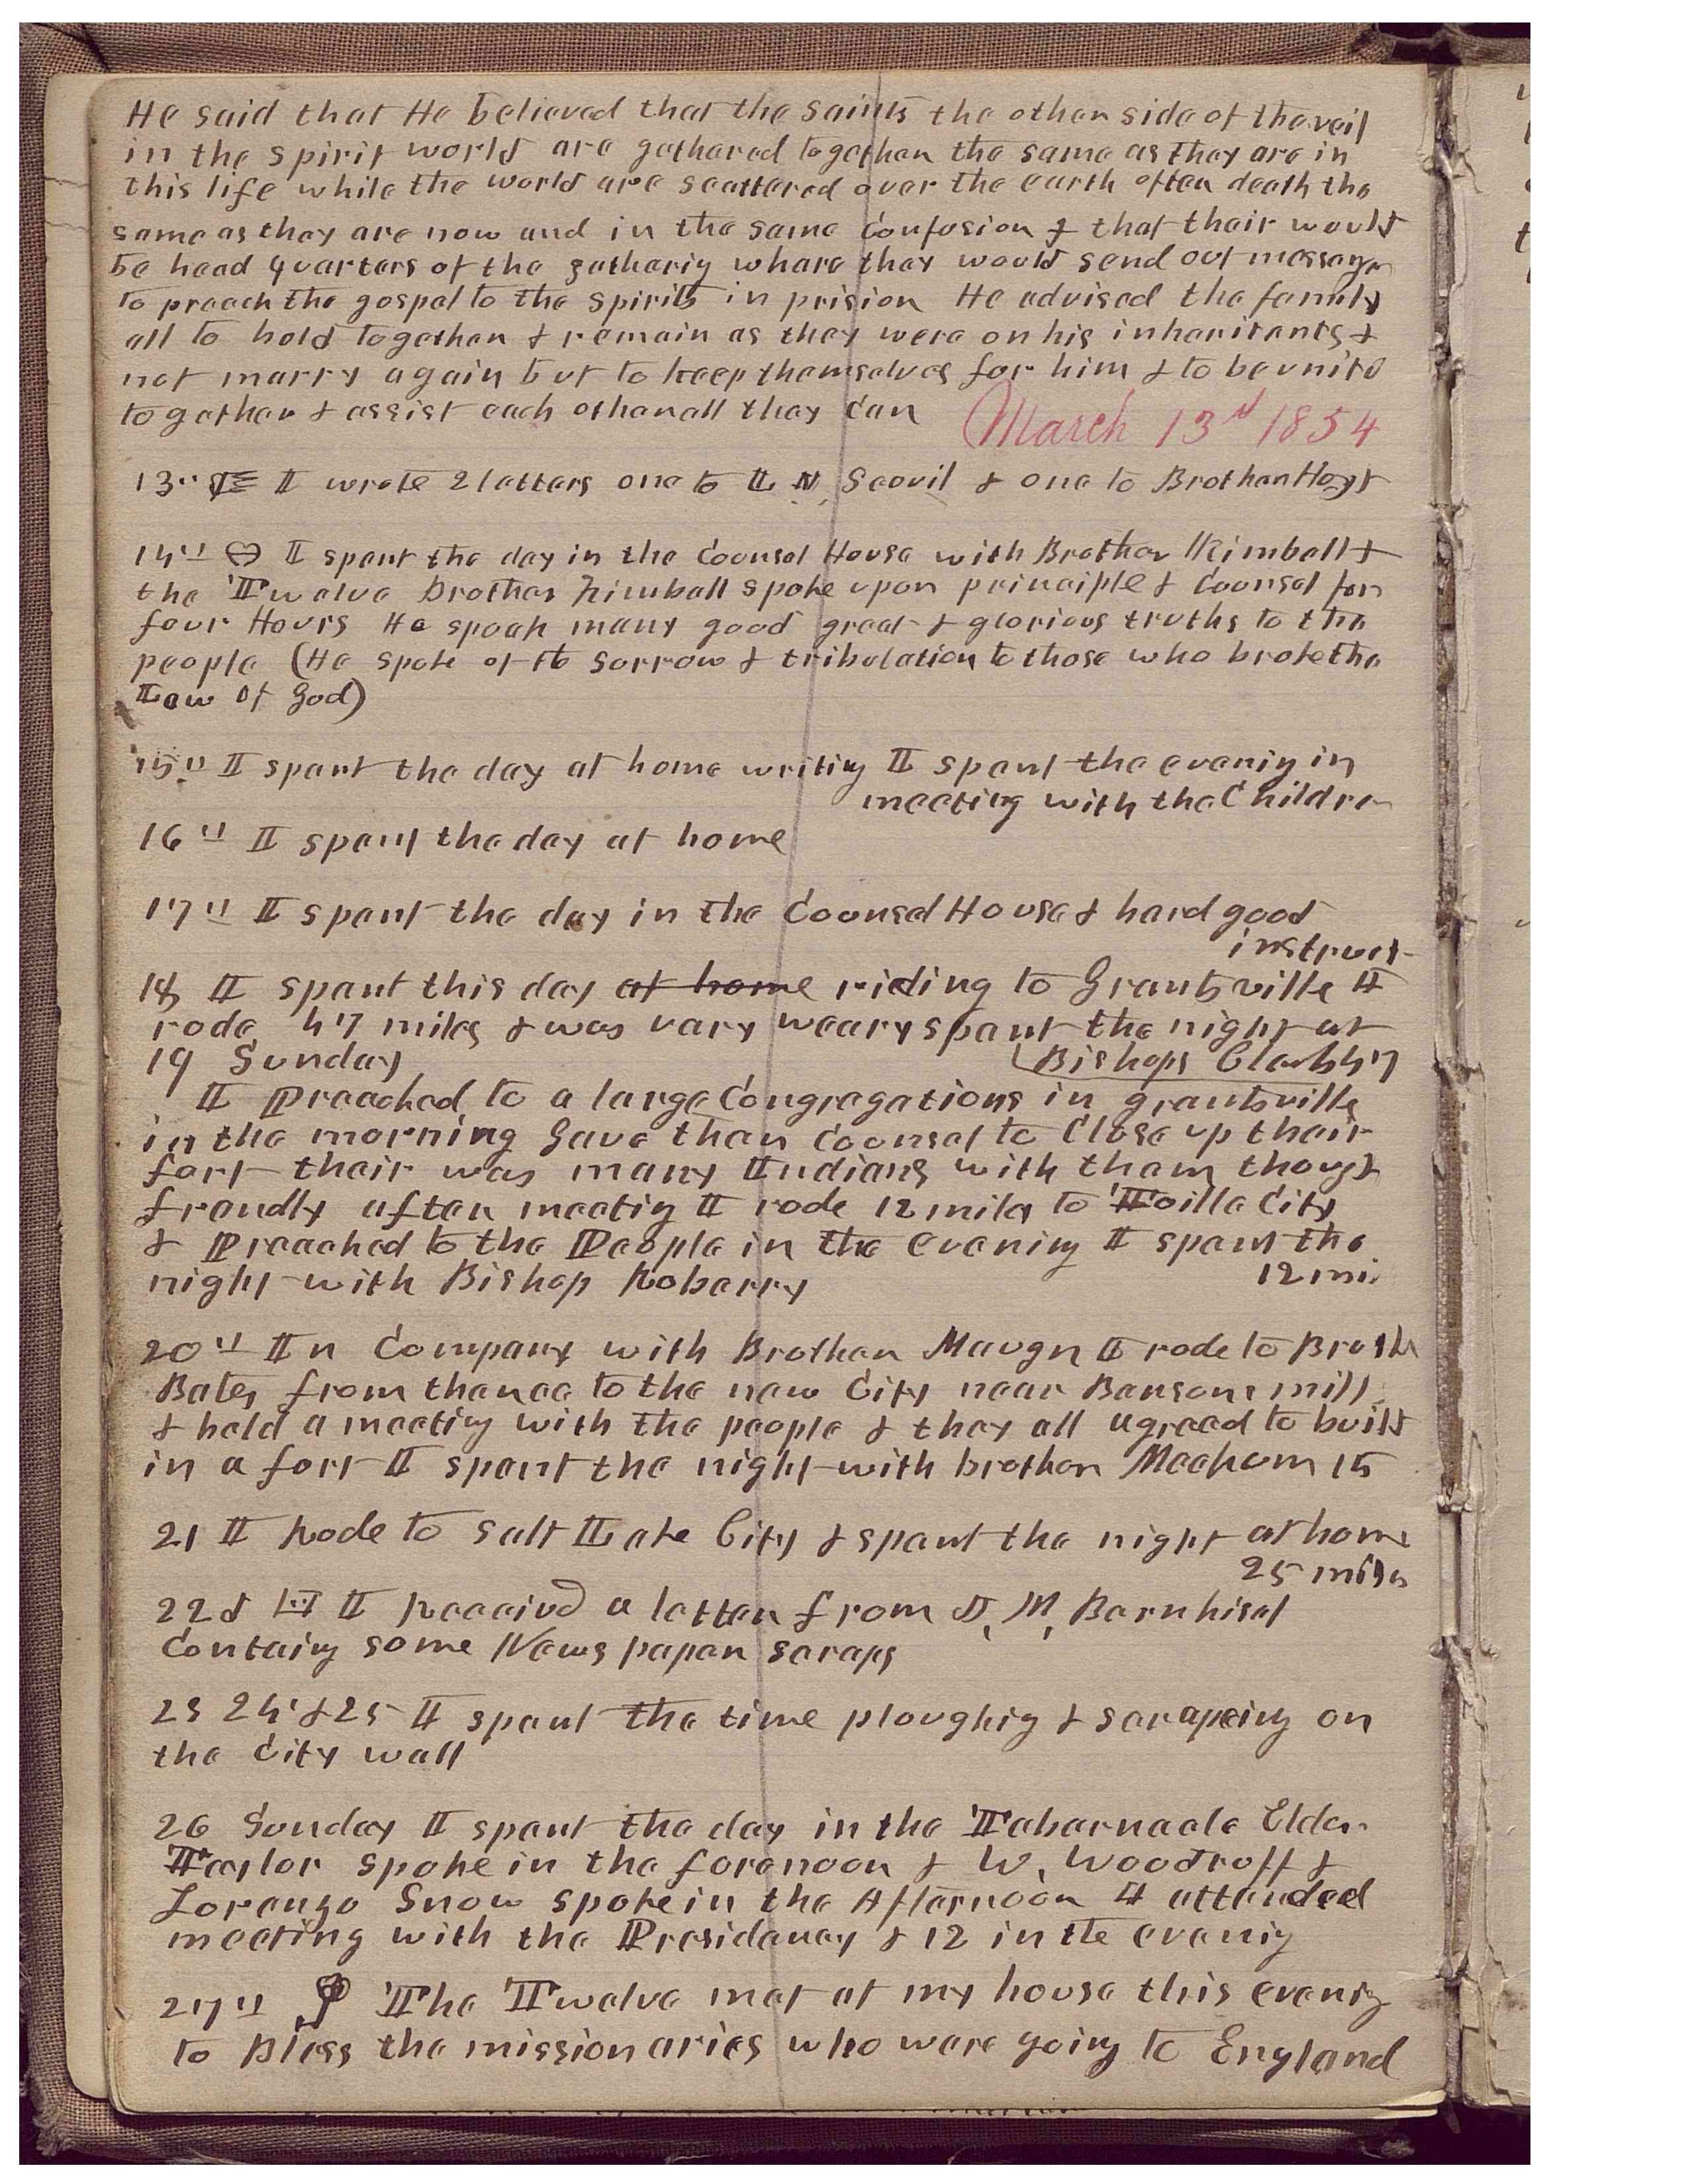 He said that He believed that the saints the other side of the veil
in the spirit world are gathered together the same as they are in
this life while the world are scattered over the earth after death the
same as they are now and in the same Confusion & that their would
be head quarters of the gatherig whare they would send out messages
to preach the gospel to the spirits in prision He advised the family
all to hold together & remain as they were on his inheritants &
not marry again but to keep themselves for him & to be unitd
together & assist each other all they can March 13d 1854
13" I wrote 2 letters one to L N, Scovil & one to Brother Hoyt
14" I spent the day in the Counsel House with Brother Kimball &
the Twelve Brother Kimball spoke upon principle & Counsel for
four Hours He spoak many good great & glorious truths to the
people (He spoke of the sorrow & tribulation to those who broke the
Law of God)
15" I spent the day at home writing I spent the evenig in
meeting with the Children
16" I spent the day at home
17" I spent the day in the Counsel House & hard good
instruct-
18 I spent this day at home riding to Grantsville I
rode 47 miles & was vary weary spent the night at
19 Sunday Bishops Clark 47
I Preached to a large Congregations in grantsville
in the morning Gave them Counsel to Close up their
fort their was many Indians with them though
frendly after meetig I rode 12 miles to Toilla City
& Preached to the People in the evening I spent the
night with Bishop Roberry 12 mi.
20" In Company with Brother Maugn I rode to Broth
Bates from thence to the new City near Bensons mill
& held a meeting with the people & they all agreed to built
in a fort I spent the night with brother Meecham 15
21 I Rode to Salt Lake City & spent the night at home
25 miles
22d I Receivd a letter from J, M, Bernhisel
Containg some News paper scraps
23 24 & 25 I spent the time ploughig & scrapeing on
the City wall
26 Sunday I spent the day in the Tabernacle Elder
Taylor spoke in the forenoon & W, Woodruff &
Lorenzo Snow spoke in the Afternoon I attended
meeting with the Presidency & 12 in the evenig
27" The Twelve met at my house this evenig
to Bless the missionaries who were going to England